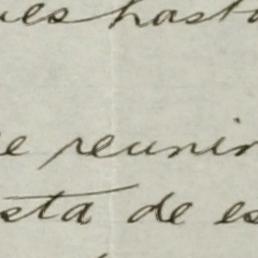 ues hasta
e reunir
sta de es